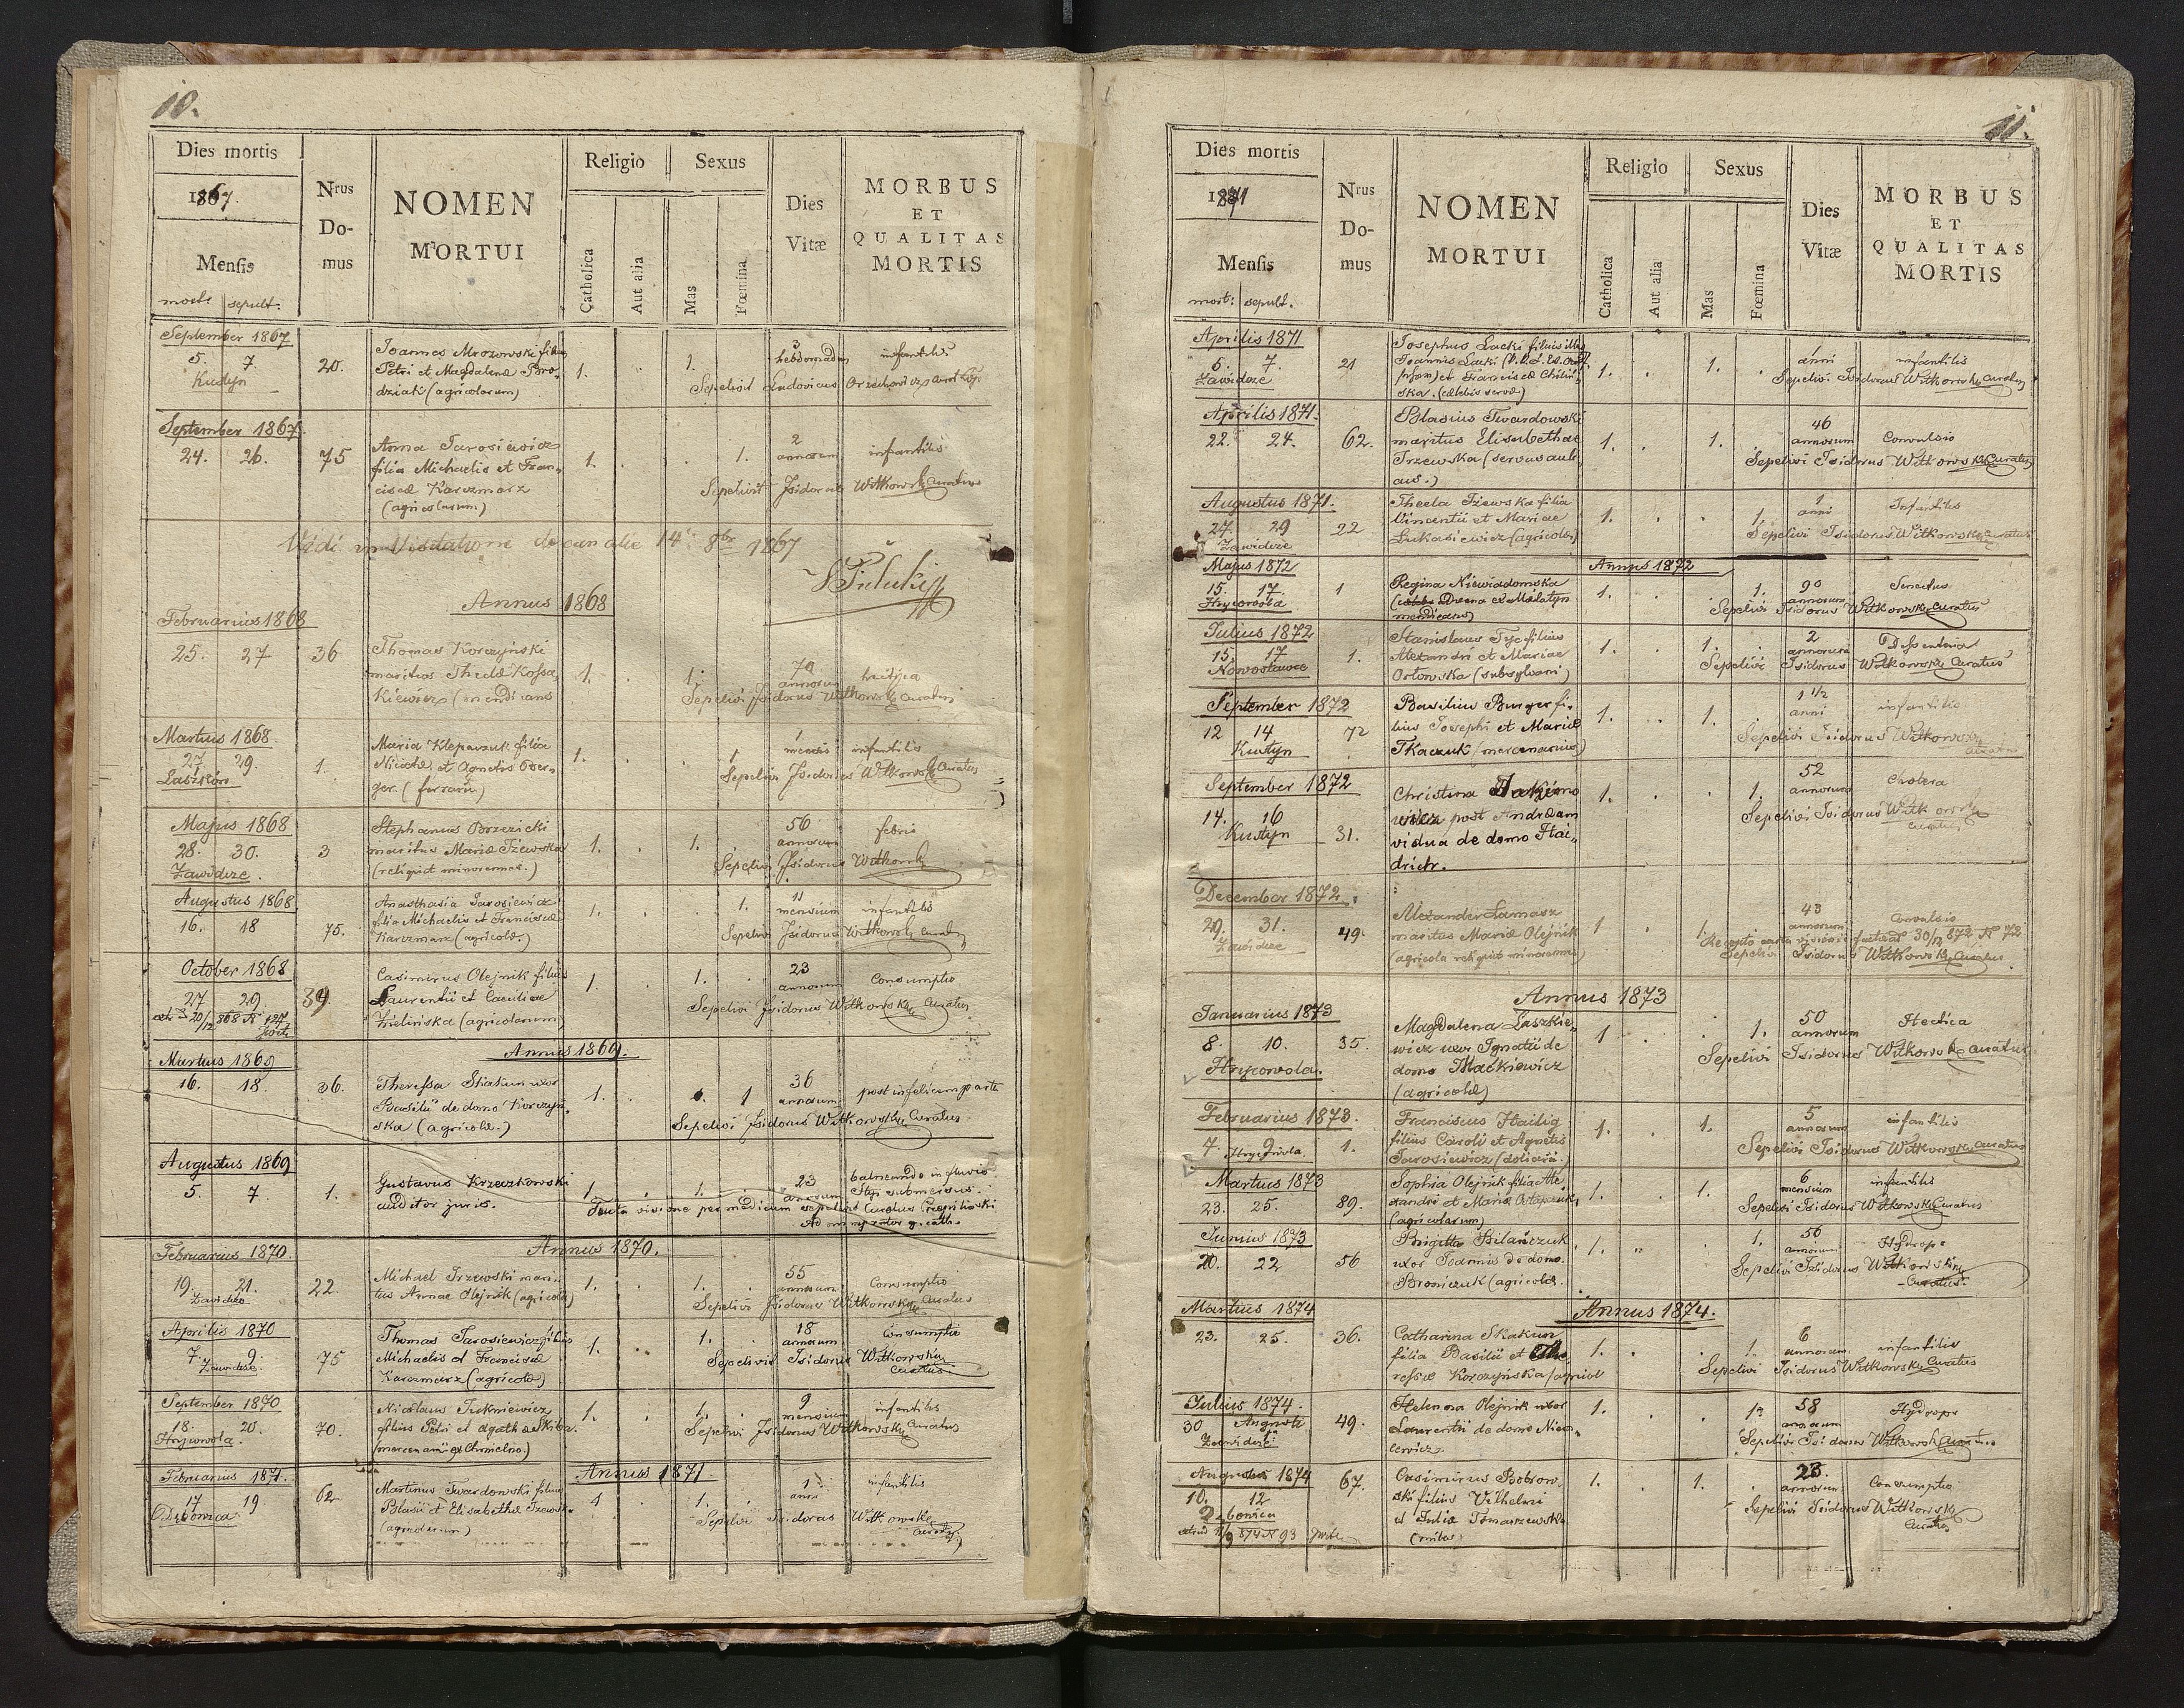 10.
Dies mortis
1867.
Mensis
mortis sepult.
Nrus
Do-
mus
NOMEN
MORTUI
Religio
Catholica
Aut alia
Sexus
Mas
Fœmina
Dies
Vitæ
MORBUS
ET
QUALITAS
MORTIS
September 1867
5. 7.
Kustyn
20.
Joannes Mrozowski filius
Petri et Magdalena Bro-
dziak (agricolarum)
1. 1.
3 hebdomadum
infantilis
Sepelivit Ludovicus Orzechowicz
September 1867
24. 26.
75
Anna Jarosiewicz
filia Michaelis et Fran-
ciscæ Karczmarz
(agricolarum)
1. 1.
2 annorum
infantilis
Sepelivit Isidorus Witkowski Curatus
Vidi in Visitatione decanali die 14. 8bre 1867
Annus 1868
Februarius 1868
25. 27
36
Thomas Korczynski
maritus Theclæ Kossa
kiewicz (mendicans
1. 1.
70 annorum
hectica
Sepelivi Isidorus Witkowski Curatus
Martius 1868.
27. 29.
Laszków
1.
Maria Kleparzuk filia
Nicolai et Agnetis Ober-
ger. (ferrarii)
1. 1
1 mensis
infantilis
Sepelivi Isidorus Witkowski Curatus
Majus 1868
28. 30.
Zawidcze.
3
Stephanus Brzezicki
maritus Mariæ Tzewska
(reliquit minorennes.)
1. 1.
56 annorum
febris
Sepelivi Isidorus Witkowski
Augustus 1868
16. 18
75.
Anasthasia Jarosiewicz
filia Michaelis et Franciscæ
Karczmarz (agricolæ.)
1. 1.
11 mensium
infantilis
Sepelivi Isidorus Witkowski Curatus
October 1868
27 29.
39.
Casimirus Olejnik filius
Laurentii et Cæciliæ
Zielińska (agricolarum)
1. 1.
23 annorum
Consumptio
Sepelivi Isidorus Witkowski Curatus
Annus 1869.
Martius 1869
16. 18.
36.
Theressa Skakun uxor
Basilii de domo Korczyń-
ska (agricolæ.)
1. 1
36 annorum
post infelicem partu
Sepelivi Isidorus Witkowski Curatus
Augustus 1869
5. 7.
1.
Gustavus Krzeczkowski
auditor juris.
1. 1.
23 annorum
balneando in fluvio
Styr submersus.
Facta visione per medicum sepelivit Curatus
Administrator gr. cath.
Annus 1870.
Februarius 1870.
19. 21.
Zawidcze
22.
Michael Trzewski mari-
tus Annae Olejnik (agricola)
1. 1.
55 annorum
Consumptio
Sepelivi Isidorus Witkowski Curatus
Aprilis 1870
7. 9.
Zawidcze.
75
Thomas Jarosiewicz filius
Michaelis et Franciscæ
Karczmarz (agricola)
1. 1.
18 annorum
Consumptio
Sepelivit Isidorus Witkowski
Curatus
September 1870
18. 20.
Hrycowola.
70.
Nicolaus Jukniewicz
filius Petri et Agathæ
(mercenarii ex Chmielno.)
1. 1.
9 mensium
infantilis
Sepelivi Isidorus Witkowski Curatus
Annus 1871.
Februarius 1871.
17 19
62.
Martinus Twardowski filius
Blasii et Elisabethæ Tzewska
(agricolarum)
1 1.
1. anni
infantilis
Sepelivi Isidorus Witkowski
Curatus
11.
Dies mortis
1871
Mensis
mort: sepult.
Nrus
Do-
mus
NOMEN
MORTUI
Religio
Catholica
Aut alia
Sexus
Mas
Fœmina
Dies
Vitæ
MORBUS
ET
QUALITAS
MORTIS
Aprilis 1871
5. 7.
Zawidcze
21
Josephus Lacki filius
Joannis Lacki
et Franciscæ Chiliń-
ska.
1. 1.
anni
infantilis
Sepelivi Isidorus Witkowski Curatus
Aprilis 1871.
22. 24.
62.
Blasius Twardowski
maritus Elisabethae
Trzewska (servus auli-
cus.)
1. 1.
46 annorum
Convulsio
Sepelivi Isidorus Witkowski Curatus
Augustus 1871.
27. 29
Zawidcze
22
Thecla Tzewska filia
Vincentii et Mariae
Lukasiewicz (agricolæ)
1. 1.
1 anni
Infantilis
Sepelivi Isidorus Witkowski Curatus
Annus 1872
Majus 1872
15. 17.
Hrycowola
1
Regina Niewiadomska
ex Milatyn
mendicans)
1. 1.
90 annorum
Senectus
Sepelivi Isidorus Witkowski Curatus
Julius 1872
15. 17
1.
Stanislaus Tyc filius
Alexandri et Mariae
Orlowska (subsylvani)
1. 1.
2 annorum
Dissenteria
Sepelivi Isidorus Witkowski Curatus
September 1872
12 14
Kustyn
72
Basilius Burger fi-
lius Josephi et Mariæ
Tkaczuk (mercenarius)
1. 1.
1 1/2 anni
infantilis
Sepelivi Isidorus Witkowski
Curatus
September 1872
14. 16
Kustyn
31.
Christina Jakimo
wicz post Andream
vidua de domo Hai-
drich.
1. 1.
52 annorum
Cholera
Sepelivi Isidorus Witkowski
Curatus
December 1872.
29. 31.
Zawidcze
49.
Alexander Lamasz
maritus Mariæ Olejnik
(agricola reliquit minorennes)
1 1.
43 annorum
Convulsio
30/12 872 N 72
Sepelivi Isidorus Witkowski Curatus
Annus 1873
Januarius 1873
8. 10.
Hrycowola.
35.
Magdalena Laszkie-
wicz uxor Ignatii de
domo Maćkiewicz
(agricolæ)
1 1.
50 annorum
Hectica
Sepelivi Isidorus Witkowski Curatus
Februarius 1873.
7. 9
Hrycowola.
1.
Franciscus Hailig
filius Caroli et Agnetis
Jarosiewicz (doliarii)
1. 1.
5 annorum
infantilis
Sepelivi Isidorus Witkowski Curatus
Martius 1873
23. 25.
89.
Sophia Olejnik filia Ale-
xandri et Mariæ
(agricolarum)
1. 1.
6 mensium
infantilis
Sepelivi Isidorus Witkowski Curatus
Junius 1873
20. 22
56
Brigitta Bilanczuk
uxor Joannis de domo
Broniczuk (agricolæ.
1. 1.
56 annorum
Hydrops
Sepelivi Isidorus Witkowski
Curatus
Annus 1874.
Martius 1874
23. 25.
36.
Catharina Skakun
filia Basilii et The-
ressæ Korczyńska (agricol
1. 1.
6 annorum
infantilis
Sepelivi Isidorus Witkowski Curatus
Julius 1874.
30 Augusti
Zawidcze
49.
Helenora Olejnik uxor
Laurentii de domo Nice-
lewicz.
1. 1
58 annorum
Hydrops
Sepelivi Isidorus Witkowski Curatus
Augustus 1874
10. 12
67.
Casimirus Bobrow-
ski filius Vilhelmi
et Juliæ Tomaszewska
(miles)
1. 1.
23. annorum
Consumptio
Sepelivi Isidorus Witkowski
Curatus